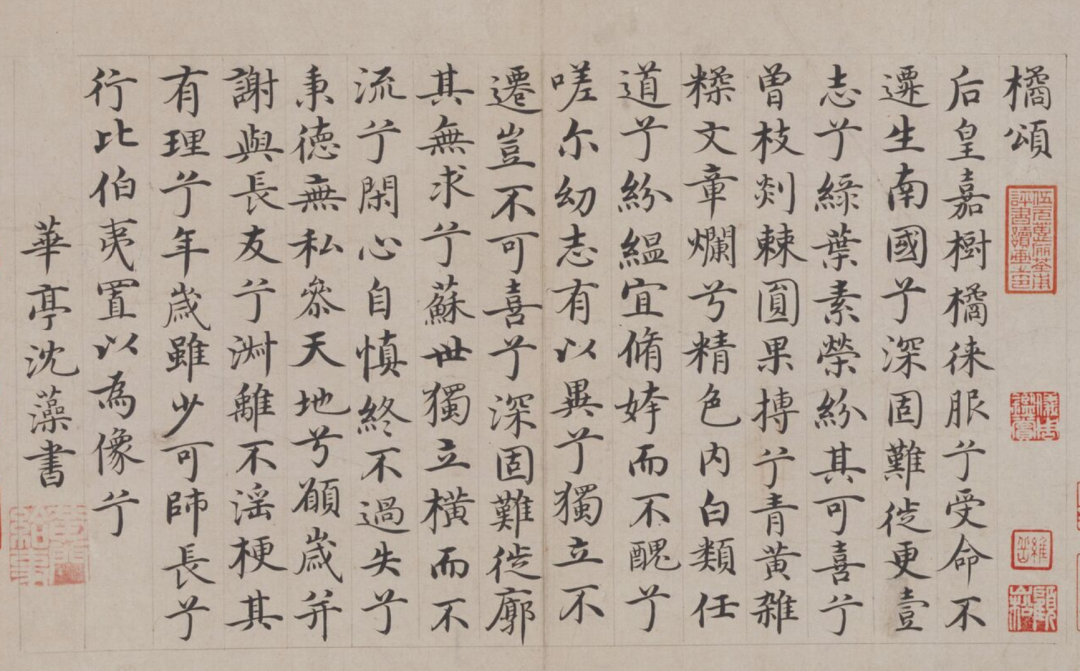 橘頌
后皇嘉樹橘徠服兮受命不
遷生南國兮深固難徙更壹
志兮綠葉素榮紛其可喜兮
曾枝剡棘圓果摶兮青黃雜
糅文章爛兮精色內白類任
道兮紛縕宜脩姱而不醜兮
嗟尔幼志有以異兮獨立不
遷豈不可喜兮深固難徙廓
其無求兮蘇世獨立橫而不
流兮閑心自慎終不過失兮
秉德無私叅天地兮願歲并
謝與長友兮淑離不淫梗其
有理兮年歲雖少可師長兮
行比伯夷置以為像兮
華亭沈藻書